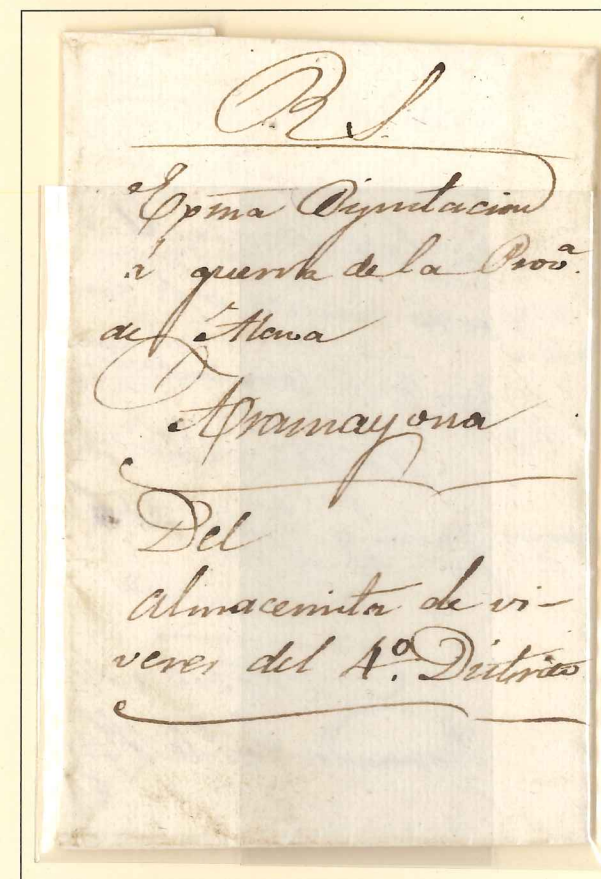 R S.
Exma Diputacion
á guerra de la Prova.
de Alava
Aramayona
Del
almacenista de vi-
veres del 4º. Distrito